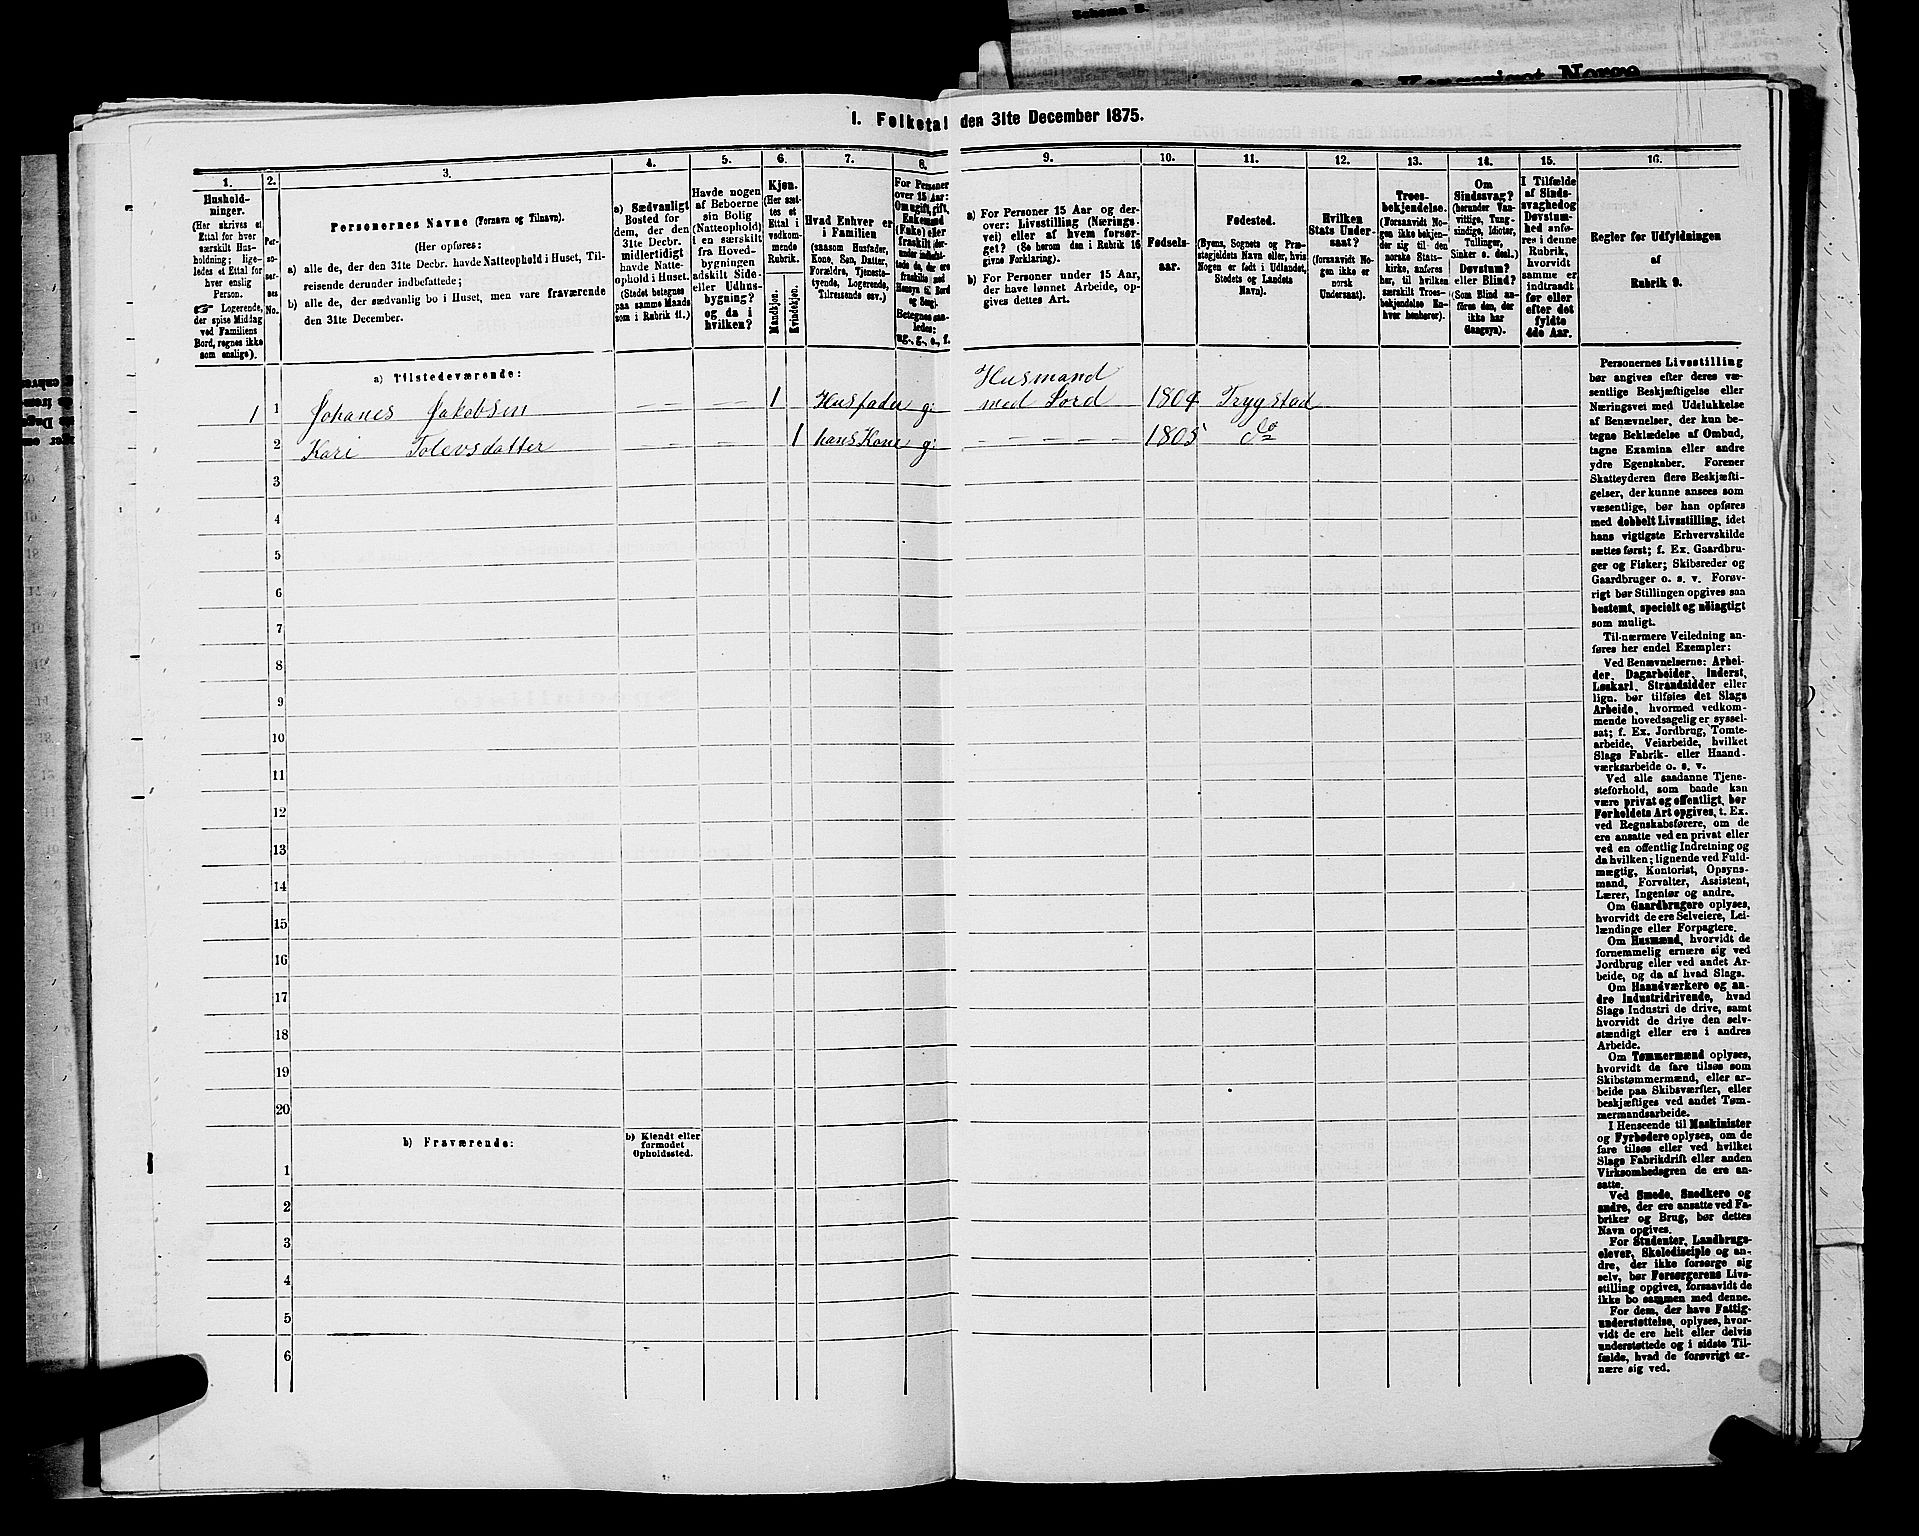 Schema B.
Kongeriget Norge
I. Folketal den 31te December 1875.
1. 2. 3. 4. 5. 6. 7. 8. 9. 10. 11. 12. 13. 14. 15. 16.
Hushold-
ninger.
(Her skrives et
Ettal for hver
særskilt Hus-
holdning; lige-
ledes et Ettal for
hver enslig
Person.
☞ Logerende,
der spise Middag
ved Familiens
Bord, regnes ikke
som enslige).
Per-
so-
ner-
nes
No.
Personernes Navne (Fornavn og Tilnavn).
(Her opføres:
a) alle de, der den 31te Decbr. havde Natteophold i Huset, Til-
reisende derunder indbefattede;
b) alle de, der sædvanlig bo i Huset, men vare fraværende
den 31te December.
a) Sædvanligt
Bosted for
dem, der den
31te Decbr.
midlertidigt
havde Natte-
ophold i Huset.
(Stedet betegnes
paa samme Maade
som i Rubrik 11.)
Havde nogen
af Beboerne
sin Bolig
(Natteophold)
i en særskilt
fra Hoved-
bygningen
adskilt Side-
eller Udhus-
bygning?
og da i
hvilken?
Kjøn.
(Her sæt-
tes et
Ettal i
vedkom-
mende
Rubrik.
Mandkjøn.
Kvindekjøn.
Hvad Enhver er
i Familien
(saasom Husfader,
Kone, Søn, Datter,
Forældre, Tjeneste-
tyende, Logerende,
Tilreisende osv.)
For Personer
over 15 Aar:
Om ugift, gift,
Enkemand
(Enke) eller
fraskilt der-
under indbefat-
tede de, der ere
fraskilte med
Hensyn til Bord
og Seng).
Betegnes saa-
ledes:
ug., g., e., f.
a) For Personer 15 Aar og der-
over: Livsstilling (Nærings-
vei) eller af hvem forsør-
get? (Se herom den i Rubrik 16
givne Forklaring).
b) For Personer under 15 Aar,
der have lønnet Arbeide, op-
gives dettes Art.
Fødsels-
aar.
Fødested.
(Byens, Sognets og Præ-
stegjeldets Navn eller, hvis
Nogen er født i Udlandet,
Stedets og Landets
Navn).
Hvilken
Stats Under-
saat?
(forsaavidt No-
gen ikke er
norsk
Undersaat).
Troes-
bekjendelse.
(Forsaavidt No-
gen ikke bekjen-
der sig til den
norske Stats-
kirke, anføres
her, til hvilken
særskilt Troes-
bekjendelse En-
hver henhører).
Om
Sindssvag?
(herunder Van-
vittige, Tung-
sindige, Idioter,
Tullinger,
Sinker o. desl.)
Døvstum?
eller Blind?
(Som Blind an-
føres den, der
ikke har
Gangsyn).
I Tilfælde
af Sinds-
svaghed og
Døvstum-
hed anfø-
res i denne
Rubrik,
hvorvidt
samme er
indtraadt
før eller
efter det
fyldte
4de Aar.
Regler for Udfyldningen
af
Rubrik 9.
a) Tilstedeværende:
Husmand
1 1 Johanes Jakobsen — — 1 Husfader g: med Jord 1804 Trygstad
2 Kari Tolevsdatter — — 1 hans Kone g: — — — — 1805 do
3
4
5
6
7
8
9
10
11
12
13
14
15
16
17
18
19
20
b) Fraværende:
b) Kjendt eller
formodet
Opholdssted.
1
2
3
4
5
6
Personernes Livsstilling
bør angives efter deres væ-
sentlige Beskjæftigelse eller
Næringsvei med Udelukkelse
af Benævnelser, der kun be-
tegne Beklædelse af Ombud,
tagne Examina eller andre
ydre Egenskaber. Forener
Skatteyderen flere Beskjæfti-
gelser, der kunne ansees som
væsentlige, bør han opføres
med dobbelt Livsstilling, idet
hans vigtigste Erhvervskilde
sættes først; f. Ex. Gaardbru-
ger og Fisker; Skibsreder og
Gaardbruger o. s. v. Forøv-
rigt bør Stillingen opgives saa
bestemt, specielt og nøiagtigt
som muligt.
Til nærmere Veiledning an-
føres her endel Exempler:
Ved Benævnelserne: Arbei-
der, Dagarbeider, Inderst,
Løskarl, Strandsidder eller
lign. bør tilføies det Slags
Arbeide, hvormed vedkom-
mende hovedsagelig er syssel-
sat; f. Ex. Jordbrug, Tomte-
arbeide, Veiarbeide, hvilket
Slags Fabrik- eller Haand-
værksarbeide o. s. v.
Ved alle saadanne Tjene-
steforhold, som baade kan
være privat og offentligt, bør
Forholdets Art opgives, t. Ex.
ved Regnskabsførere, om de
ere ansatte ved en privat eller
ved en offentlig Indretning og
da hvilken; lignende ved Fuld-
mægtig, Kontorist, Opsyns-
mand, Forvalter, Assistent,
Lærer, Ingeniør og andre.
Om Gaardbrugere oplyses,
hvorvidt de ere Selveiere, Lei-
lændinge eller Forpagtere.
Om Husmænd, hvorvidt de
fornemmelig ernære sig ved
Jordbrug eller ved andet Ar-
beide, og da af hvad Slags.
Om Haandværkere og an-
dre Industridrivende, hvad
Slags Industri de drive, samt
hvorvidt de drive den selv-
stændigt eller ere i andres
Arbeide.
Om Tømmermænd oplyses,
hvorvidt de fare tilsøs som
Skibstømmermænd, eller ar-
beide paa Skibsværfter, eller
beskjæftiges ved andet Tøm-
mermandsarbeide.
I Henseende til Maskinister
og Fyrbødere oplyses, om de
fare tilsøs eller ved hvilket
Slags Fabrikdrift eller anden
Virksomhedsgren de ere an-
satte.
Ved Smede, Snedkere og
andre, der ere ansatte ved Fa-
briker og Brug, bør dettes
Navn opgives.
For Studenter, Landbrugs-
elever, Skoledisciple og an-
dre, der ikke forsørge sig
selv, bør Forsørgerens Livs-
stilling opgives, forsaavidt de
ikke bo sammen med denne.
For dem, der have Fattig-
understøttelse, oplyses, hvor-
vidt de ere helt eller delvis
understøttede og i sidste Til-
fælde, hvad de forøvrigt er-
nære sig ved.